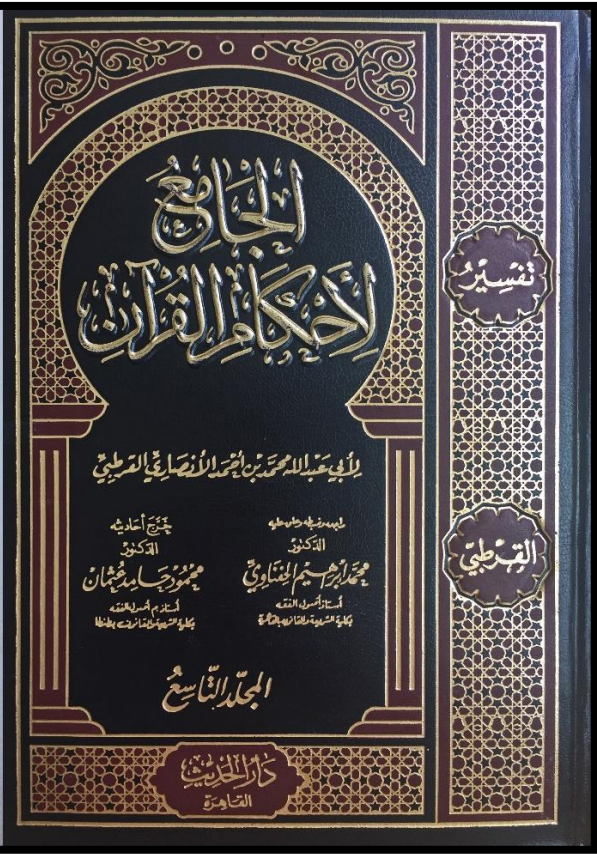 الجامع
لأحكام القرآن
لأبي عبد الله محمد بن أحمد الأنصاري القرطبي
راجعه وضبطه وعلق عليه
الدكتور
محمد إبراهيم الحفناوي
أستاذ أصول الفقه
بكلية الشريعة والقانون بالقاهرة
خرج أحاديثه
الدكتور
محمود حامد عثمان
أستاذ م أصول الفقه
بكلية الشريعة والقانون بطنطا
المجلد التاسع
دار الحديث
القاهرة
تفسير
القرطبي